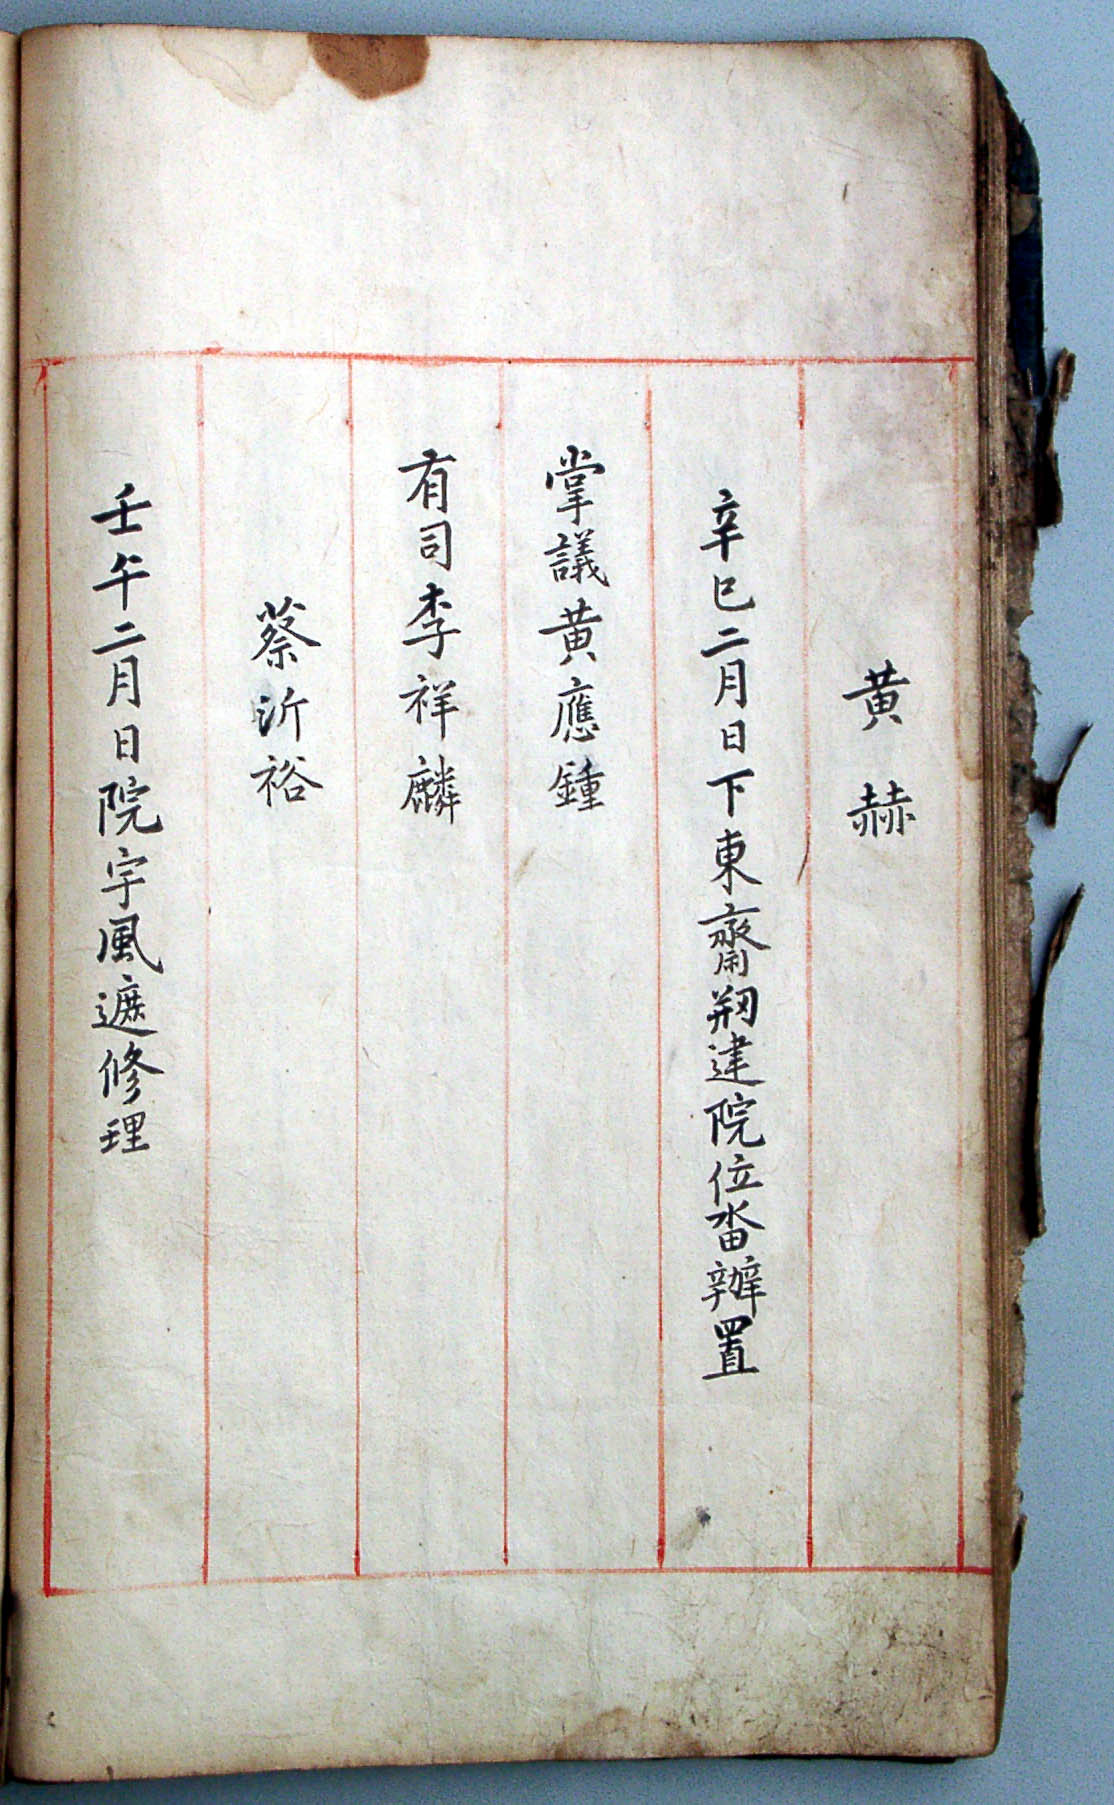 黃赫
辛巳二月日下東齋剏建院位畓辦置
掌議黃應鍾
有司李祥麟
蔡沂裕
壬午二月日院宇風遮修理